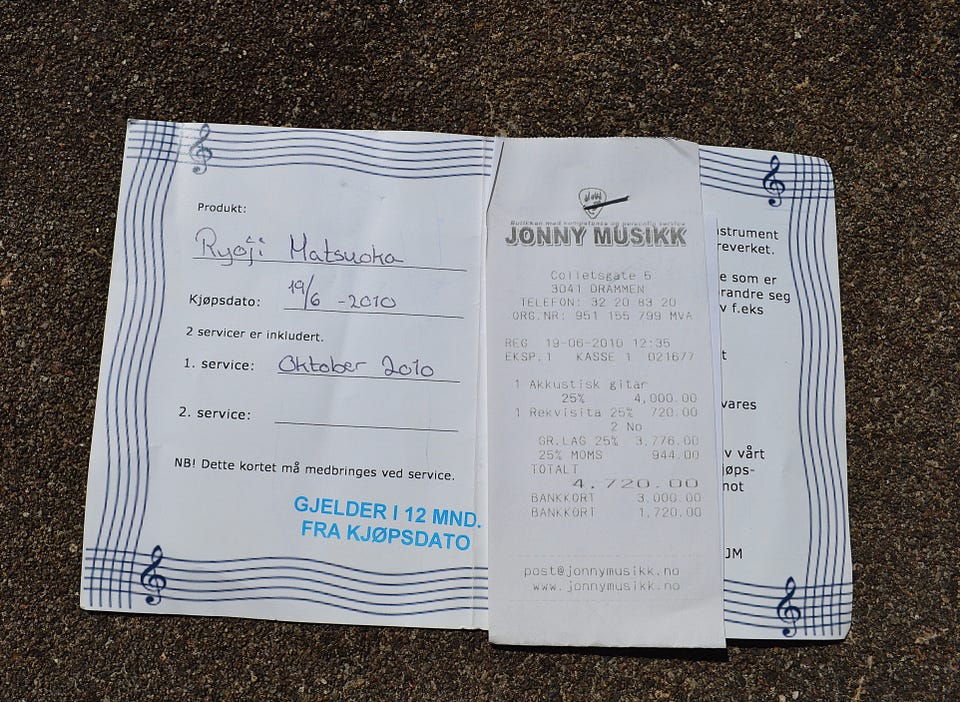 Produkt:
Ryoji Matsuoka
Kjøpsdato: 19/6 -2010
2 servicer er inkludert.
1. service: Oktober 2010
2. service:
NB! Dette kortet må medbringes ved service.
GJELDER I 12 MND.
FRA KJØPSDATO
Butikken med kompetanse og personlig service
JONNY MUSIKK
Colletsgate 5
3041 DRAMMEN
TELEFON: 32 20 83 20
ORG.NR: 951 155 799 MVA
REG 19-06-2010 12:35
EKSP.1 KASSE 1 021677
1 Akkustisk gitar
25% 4,000.00
1 Rekvisita 25% 720.00
2 No
GR.LAG 25% 3,776.00
25% MOMS 944.00
TOTALT
4,720.00
BANKKORT 3,000.00
BANKKORT 1,720.00
post@jonnymusikk.no
www.jonnymusikk.no
nstrument
reverket.
e som er
randre seg
v f.eks
t
vares
v vårt
jøps-
not
JM